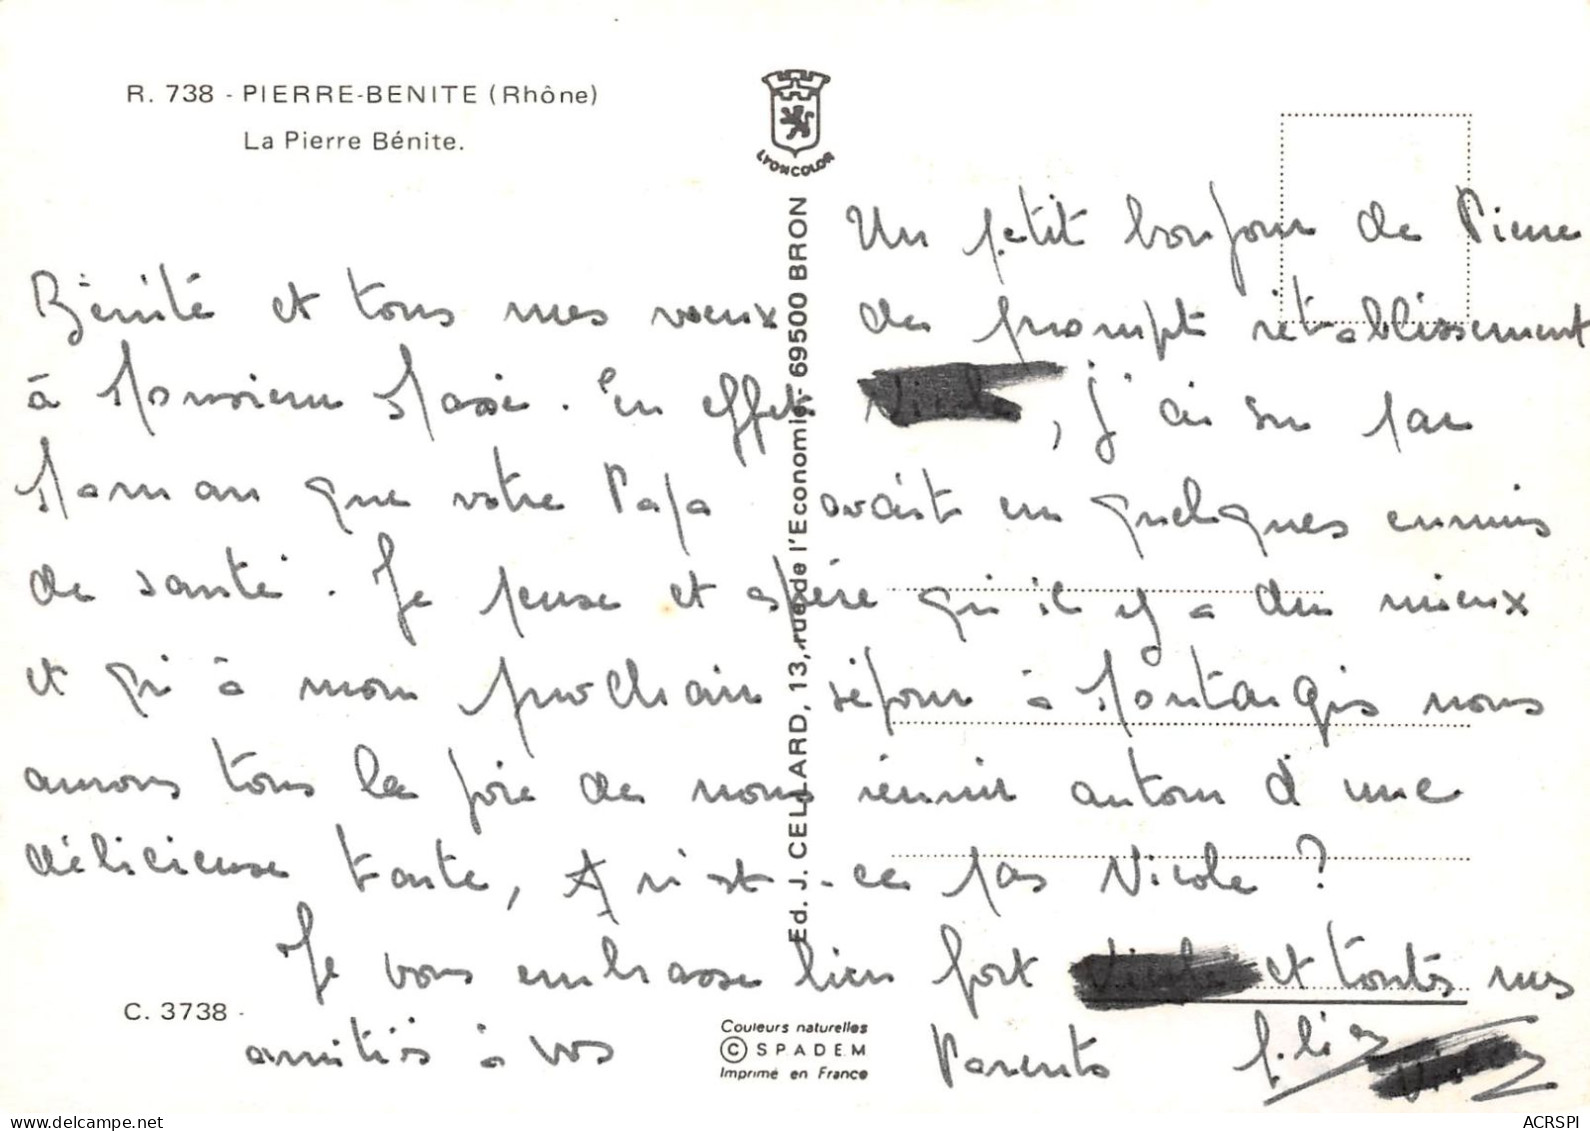 R. 738 - PIERRE-BENITE (Rhône)
La Pierre Bénite.
LYONCOLOR
Un petit bonjour de Pierre
Bénite et tous mes voeux de prompt rétablissement
à Monsieur Masse. En effet, j'ai su par
Maman que votre Papa avait eu quelques ennuis
de santé. Je pense et espère qu'il y a du mieux
et qu'à mon prochain séjour à Montargis nous
aurons tous la joie de nous réunir autour d'une
délicieuse tarte, n'est-ce pas Nicole ?
Je vous embrasse bien fort Nicole et toutes mes
amitiés à vos Parents
Ed. J. CELLARD, 13, rue de l'Economie - 69500 BRON
C. 3738 -
Couleurs naturelles
© SPADEM
Imprimé en France
https://www.delcampe.net
ACRSPI